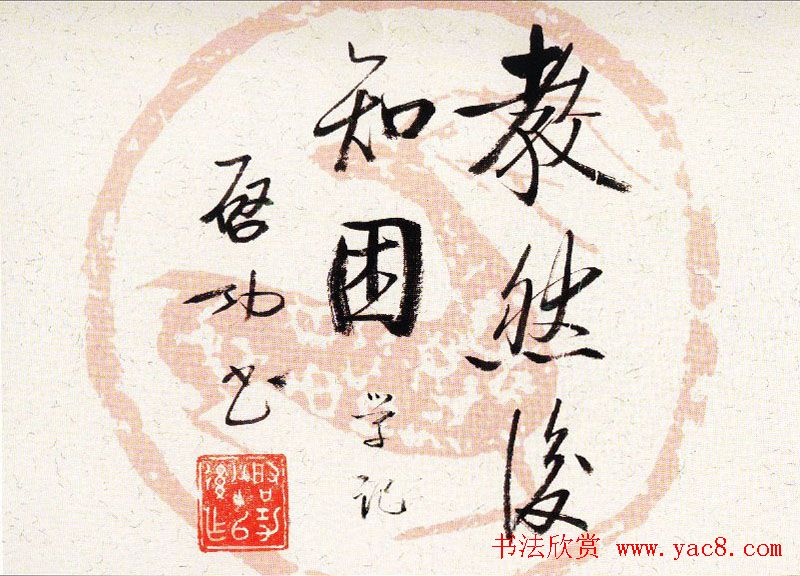 教然後
知困 学记
啓功书
书法欣赏 www.yac8.com